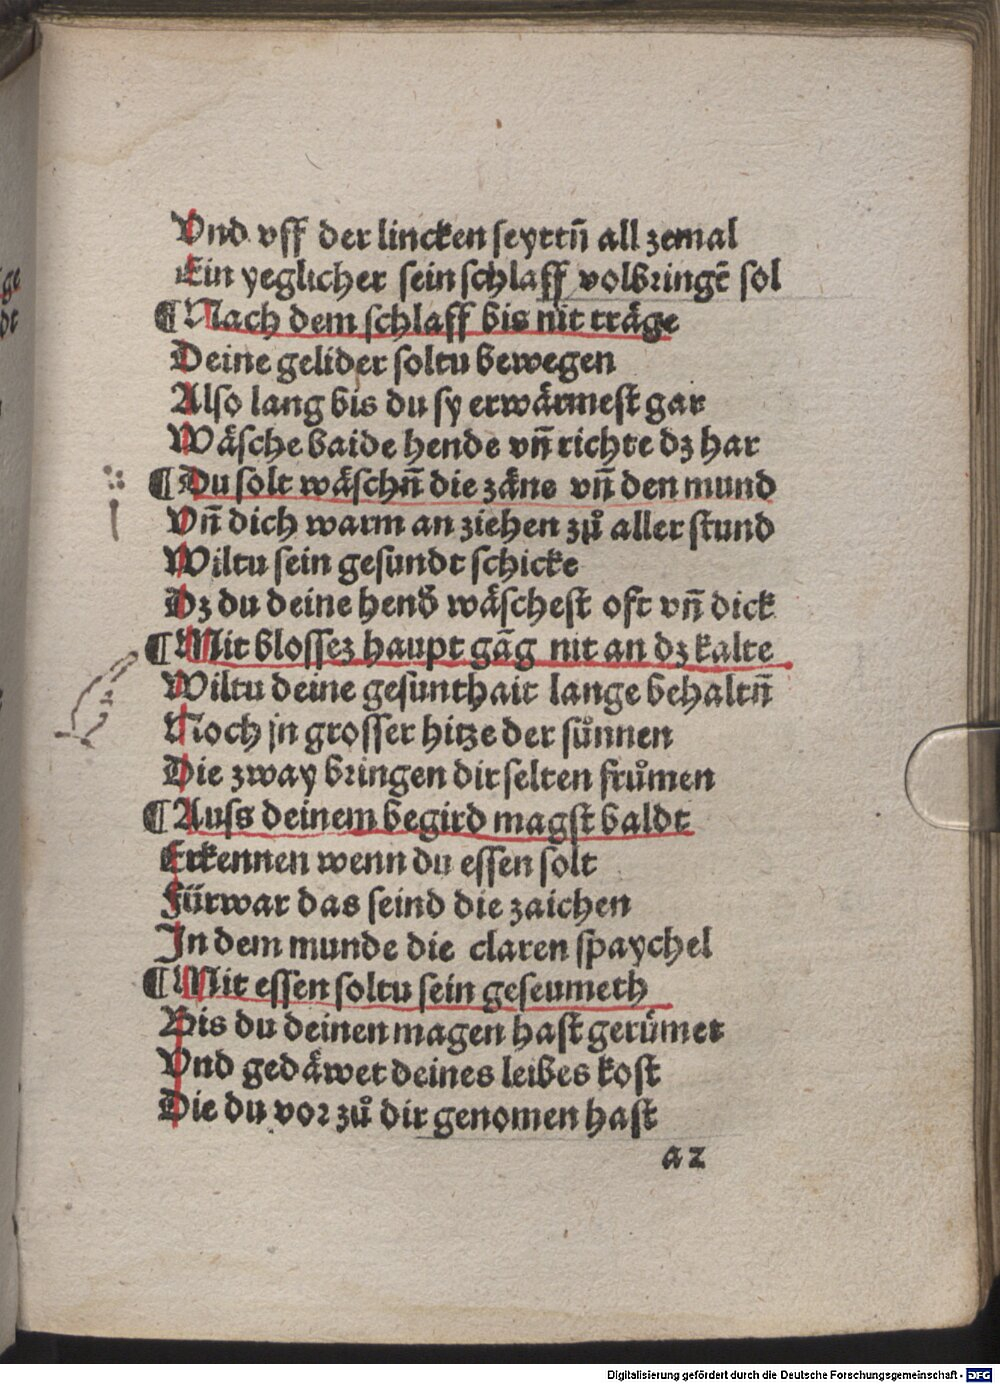 Vnd vff der lincken seyttñ all zemal
Ein yeglicher sein schlaff volbringẽ sol
¶ Nach dem schlaff bis nit träge
Deine gelider soltu bewegen
Also lang bis du sy erwärmest gar
Wäsche baide hende vñ richte dz har
¶ Du solt wäschñ die zäne vñ den mund
Vñ dich warm an ziehen zů aller stund
Wiltu sein gesundt schicke
Dz du deine hend wäschest oft vñ dick
¶ Mit blossez haupt gãg nit an dz kalte
Wiltu deine gesunthait lange behaltñ
Noch jn grosser hitze der sůnnen
Die zway bringen dir selten frůmen
¶ Auss deinem begird magst baldt
Erkennen wenn du essen solt
Fürwar das seind die zaichen
In dem munde die claren spaychel
¶ Mit essen soltu sein geseumeth
Bis du deinen magen hast gerümet
Vnd gedäwet deines leibes kost
Die du vor zů dir genomen hast
a2
Digitalisierung gefördert durch die Deutsche Forschungsgemeinschaft - DFG